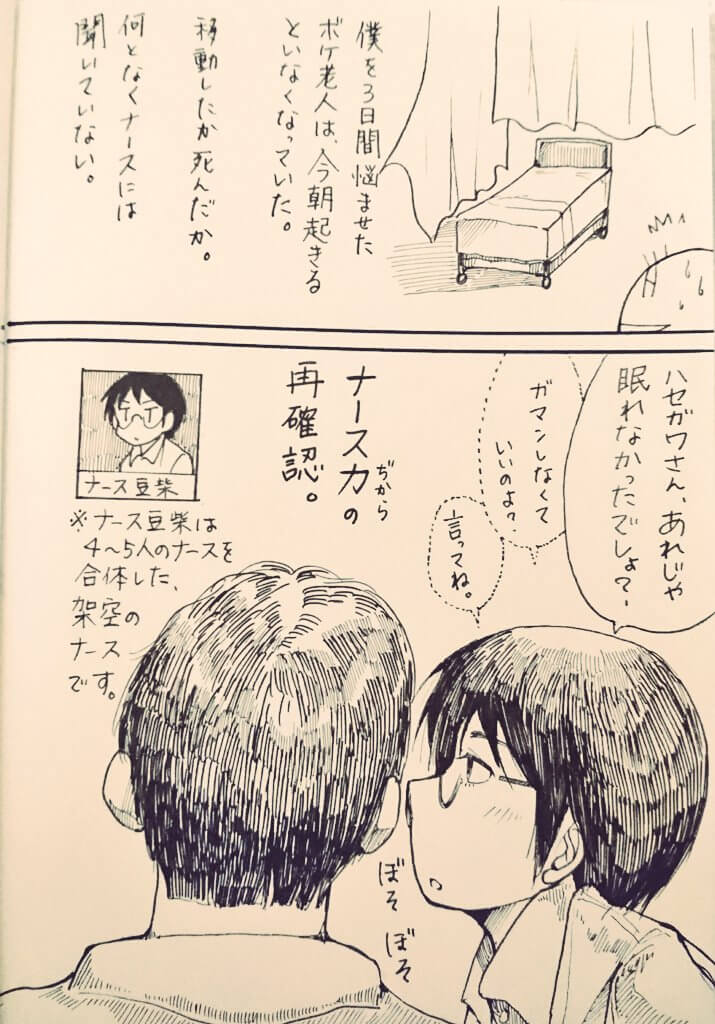 僕を3日間悩ませた
ボケ老人は、今朝起きる
といなくなっていた。
移動したか死んだか。
何となくナースには
聞いていない。
ハセガワさん、あれじゃ
眠れなかったでしょ?
ガマンしなくて
いいのよ?
言ってね。
ナース力の
ぢから
再確認。
ナース豆柴
※ナース豆柴は
4〜5人のナースを
合体した、
架空の
ナース
です。
ぼそ
ぼそ